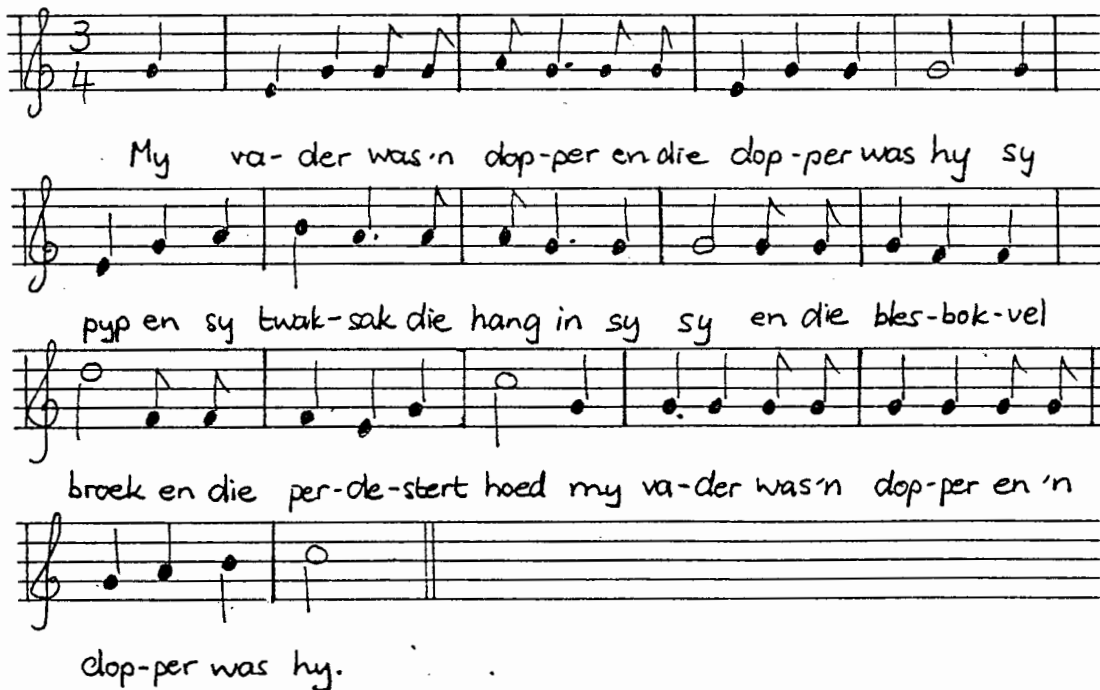 3
4
My va-der was 'n dop-per en die dop-per was hy sy
pyp en sy twak-sak die hang in sy sy en die bles-bok-vel
broek en die per-de-stert hoed my va-der was 'n dop-per en 'n
dop-per was hy.